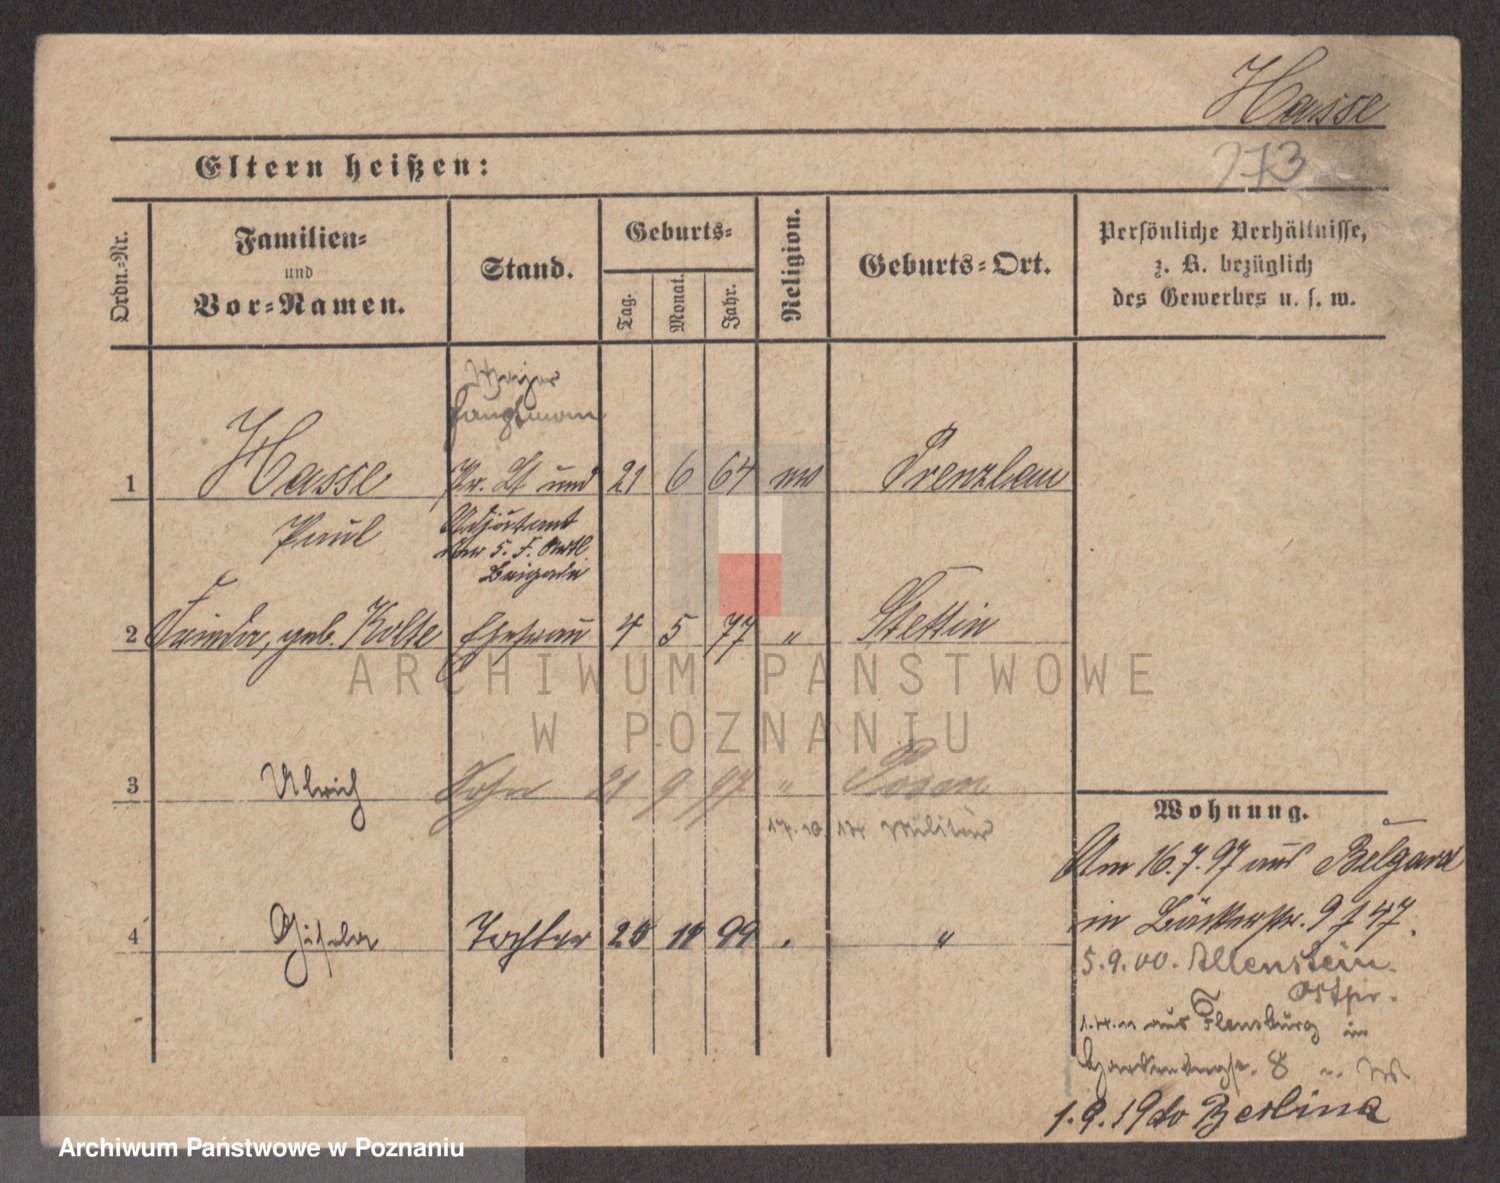 Hasse
273
Eltern heißen:
Ordn.-Nr.
Familien-
und
Vor-Namen.
Stand.
Geburts-
Tag.
Monat.
Jahr.
Religion.
Geburts-Ort.
Persönliche Verhältnisse,
z. B. bezüglich
des Gewerbes u. s. w.
Major
Hauptmann
1 Hasse Pr. Lt und 21 6 64 ev Prenzlau
Paul Adjutant
der 5. F. Artl.
Brigade
2 Frieda, geb. Kolbe Ehefrau 4 5 77 " Stettin
ARCHIWUM PAŃSTWOWE
W POZNANIU
3 Ulrich Sohn 21 9 97 " Posen
17.10.14 Militär
Wohnung.
Am 16.7.97 aus Belgard
in Bäckerstr. 9 f 47.
4 Gisela Tochter 11 99 "
5.9.00. Allenstein
Ostpr.
aus Flensburg in
8
1.9.19 do Berlina
Archiwum Państwowe w Poznaniu